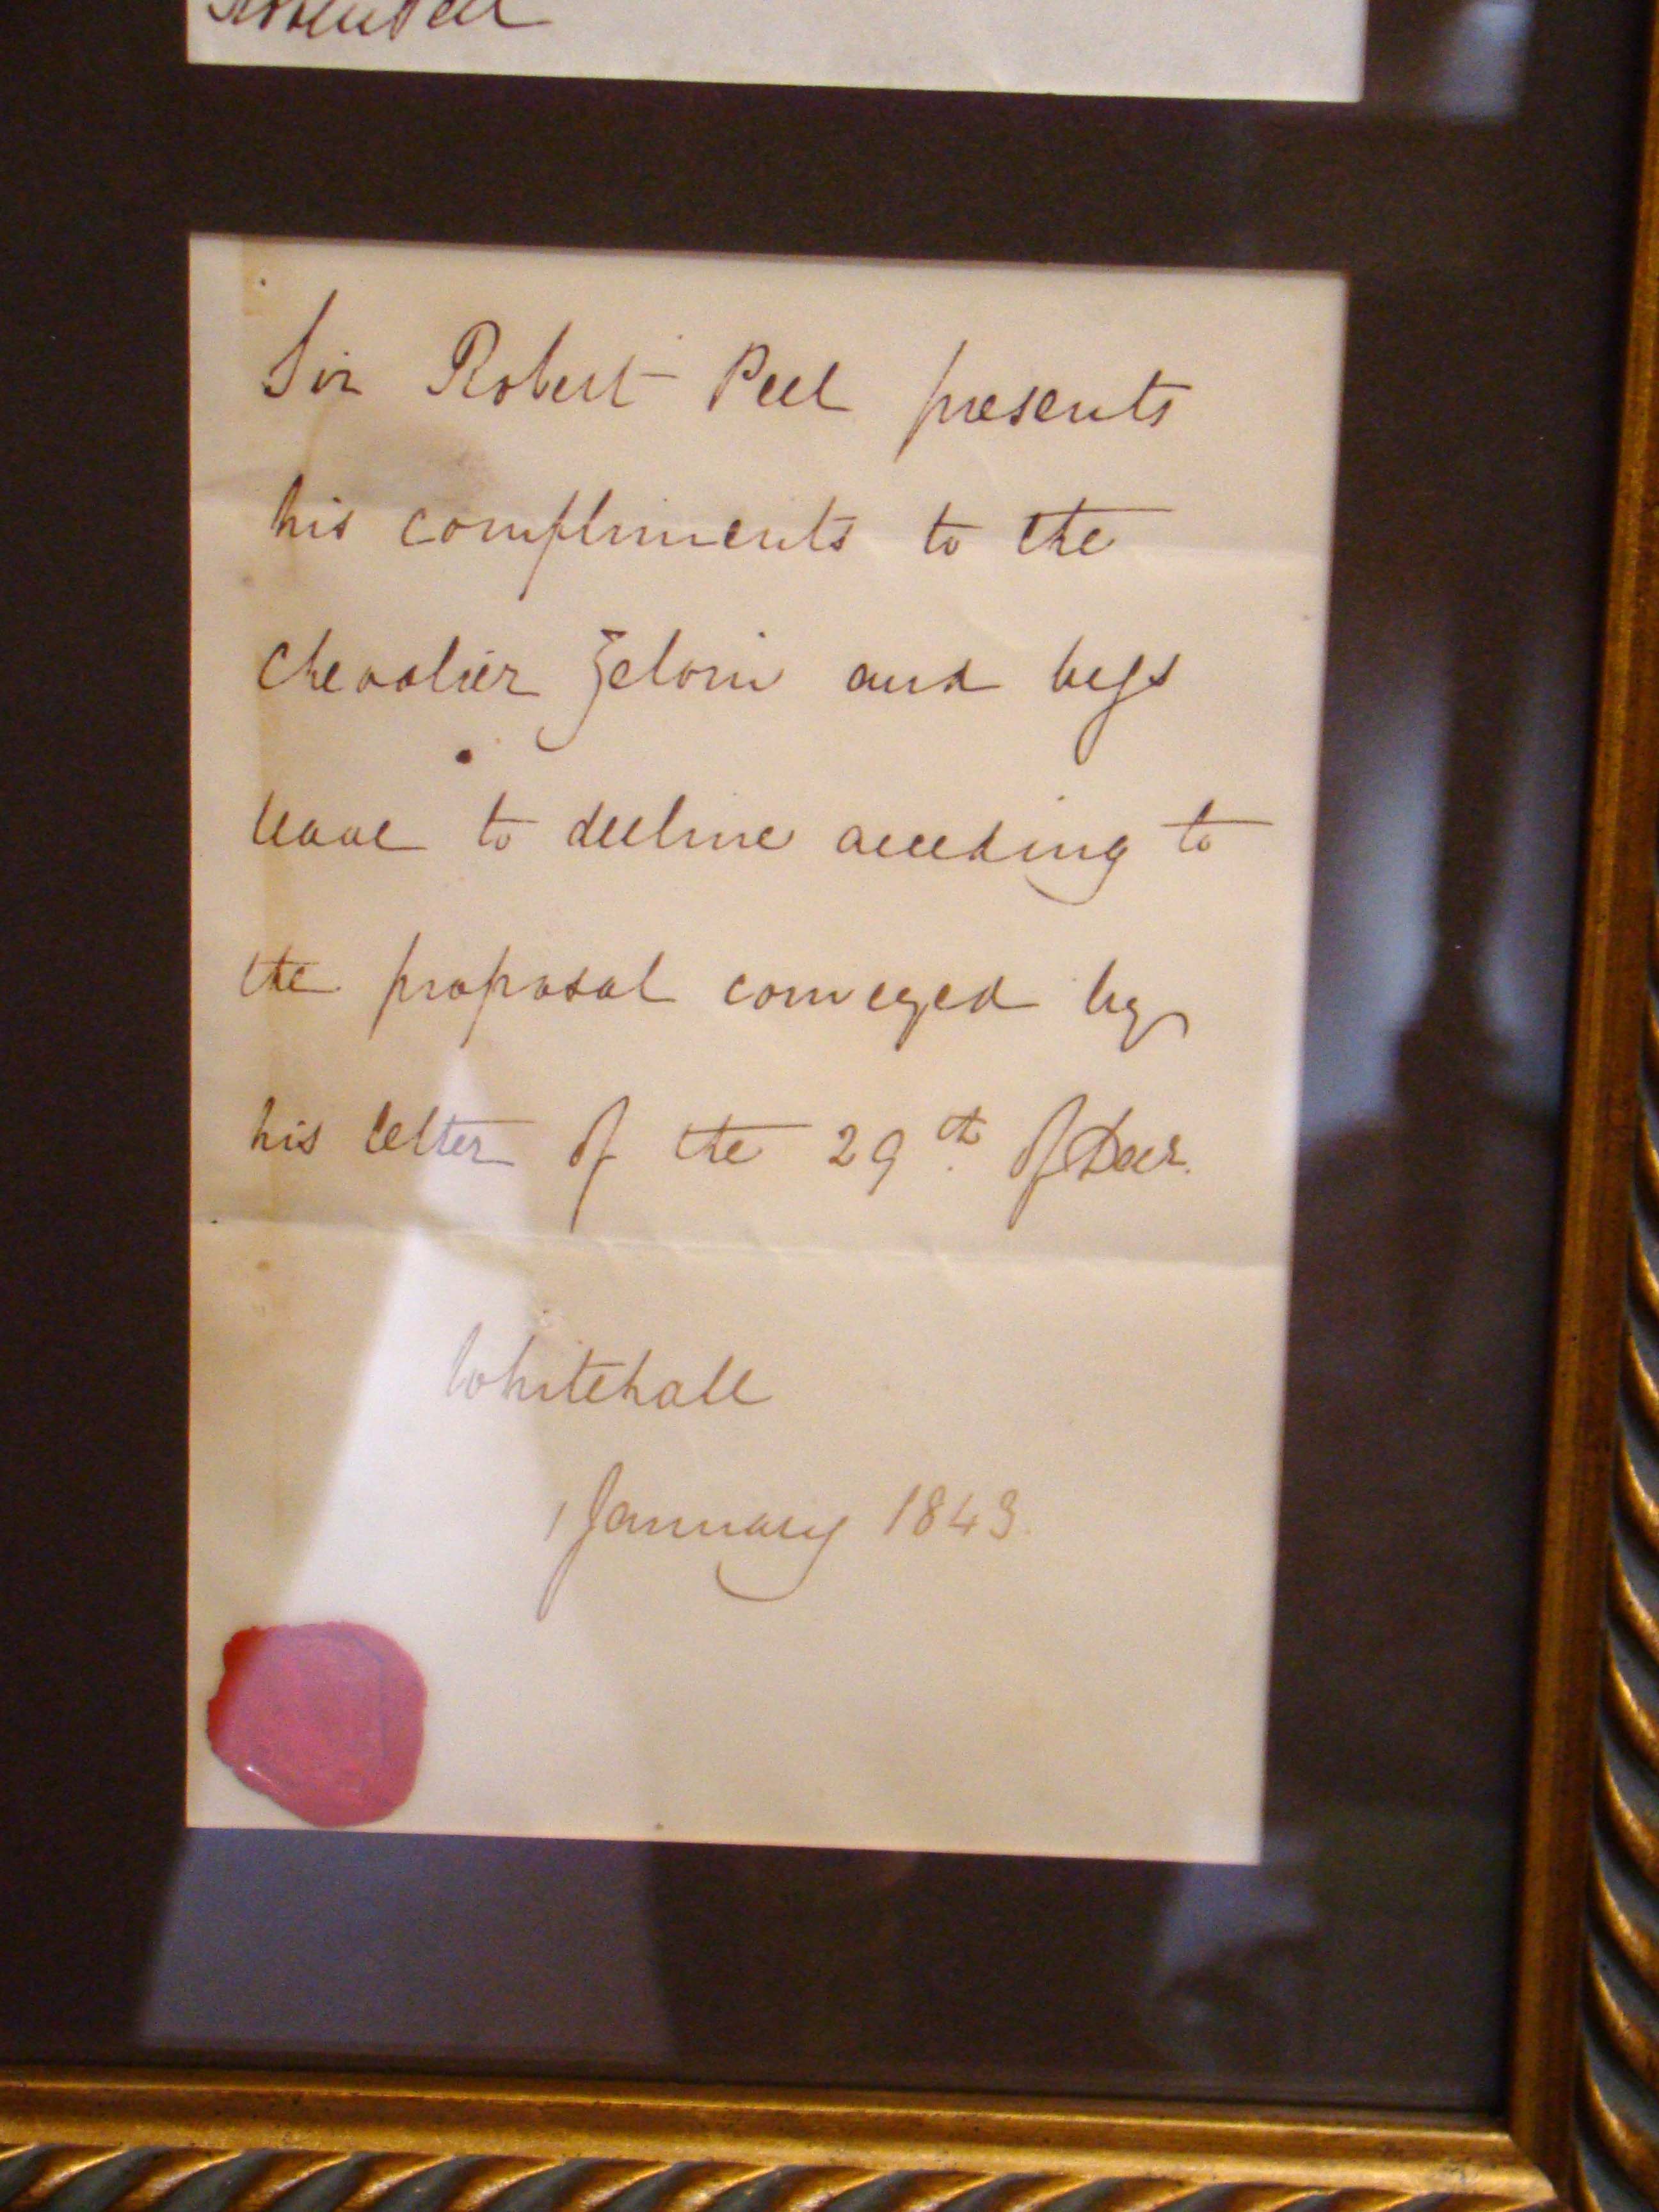 Sir Robert Peel presents
his compliments to the
Chevalier and begs
leave to decline acceding to
the proposal conveyed by
his letter of the 29th. of Decr.
Whitehall
1 January 1843.